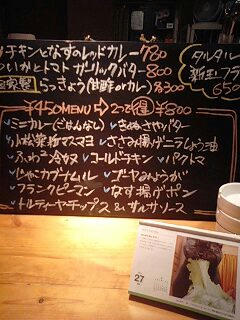 チキンとなすのレッドカレー 780
いかとトマト ガーリックバター 800
自家製 らっきょう(甘酢orカレー) 各300
タルタル
650
¥450MENU⇨2つで得¥800
ミニカレー(ごはんなし) ✓きぬさやバター
✓小松菜粉マスマヨ ✓ささみ揚げニラしょう油
✓ふわ²冷奴 ✓コールドチキン ✓パクトマ
✓じゃこカブナムル ✓ゴーヤみょうが
✓フランクピーマン ✓なす揚げポン
✓トルティーヤチップス&サルサソース
27